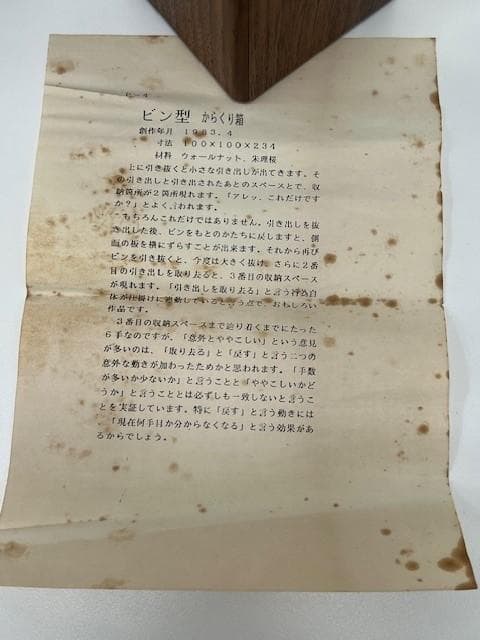 ビン型 からくり箱
創作年月 1983.4
寸法 100×100×234
材料 ウォールナット、朱理桜
上に引き抜くと小さな引き出しが出てきます。そ
の引き出しと引き出されたあとのスペースとで、収
納箇所が2箇所現れます。「アレッ、これだけです
か?」とよく言われます。
もちろんこれだけではありません。引き出しを抜
き出した後、ビンをもとのかたちに戻しますと、側
面の板を横にずらすことが出来ます。それから再び
ビンを引き抜くと、今度は大きく抜け、さらに2番
目の引き出しを取り去ると、3番目の収納スペース
が現れます。「引き出しを取り去る」と言う行為自
体が仕掛けに連動しているという点で、おもしろい
作品です。
3番目の収納スペースまで辿り着くまでにたった
6手なのですが、「意外とややこしい」という意見
が多いのは、「取り去る」と「戻す」と言う二つの
意外な動きが加わったためかと思われます。「手数
が多いか少ないか」と言うことと「ややこしいかど
うか」と言うこととは必ずしも一致しないと言うこ
とを実証しています。特に「戻す」と言う動きには
「現在何手目か分からなくなる」と言う効果があ
るからでしょう。